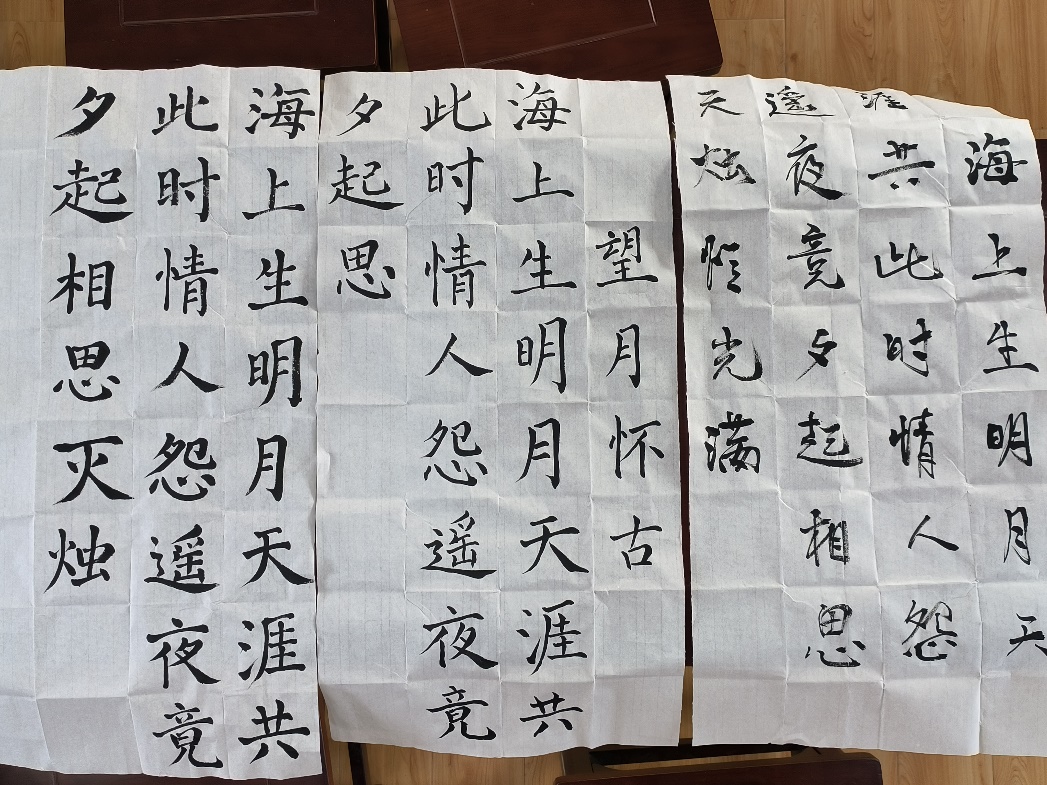 海上生明月天
涯共此时情人怨
遥夜竟夕起相思
灭烛怜光满
望月怀古
海上生明月天涯共
此时情人怨遥夜竟
夕起思
海上生明月天涯共
此时情人怨遥夜竟
夕起相思灭烛